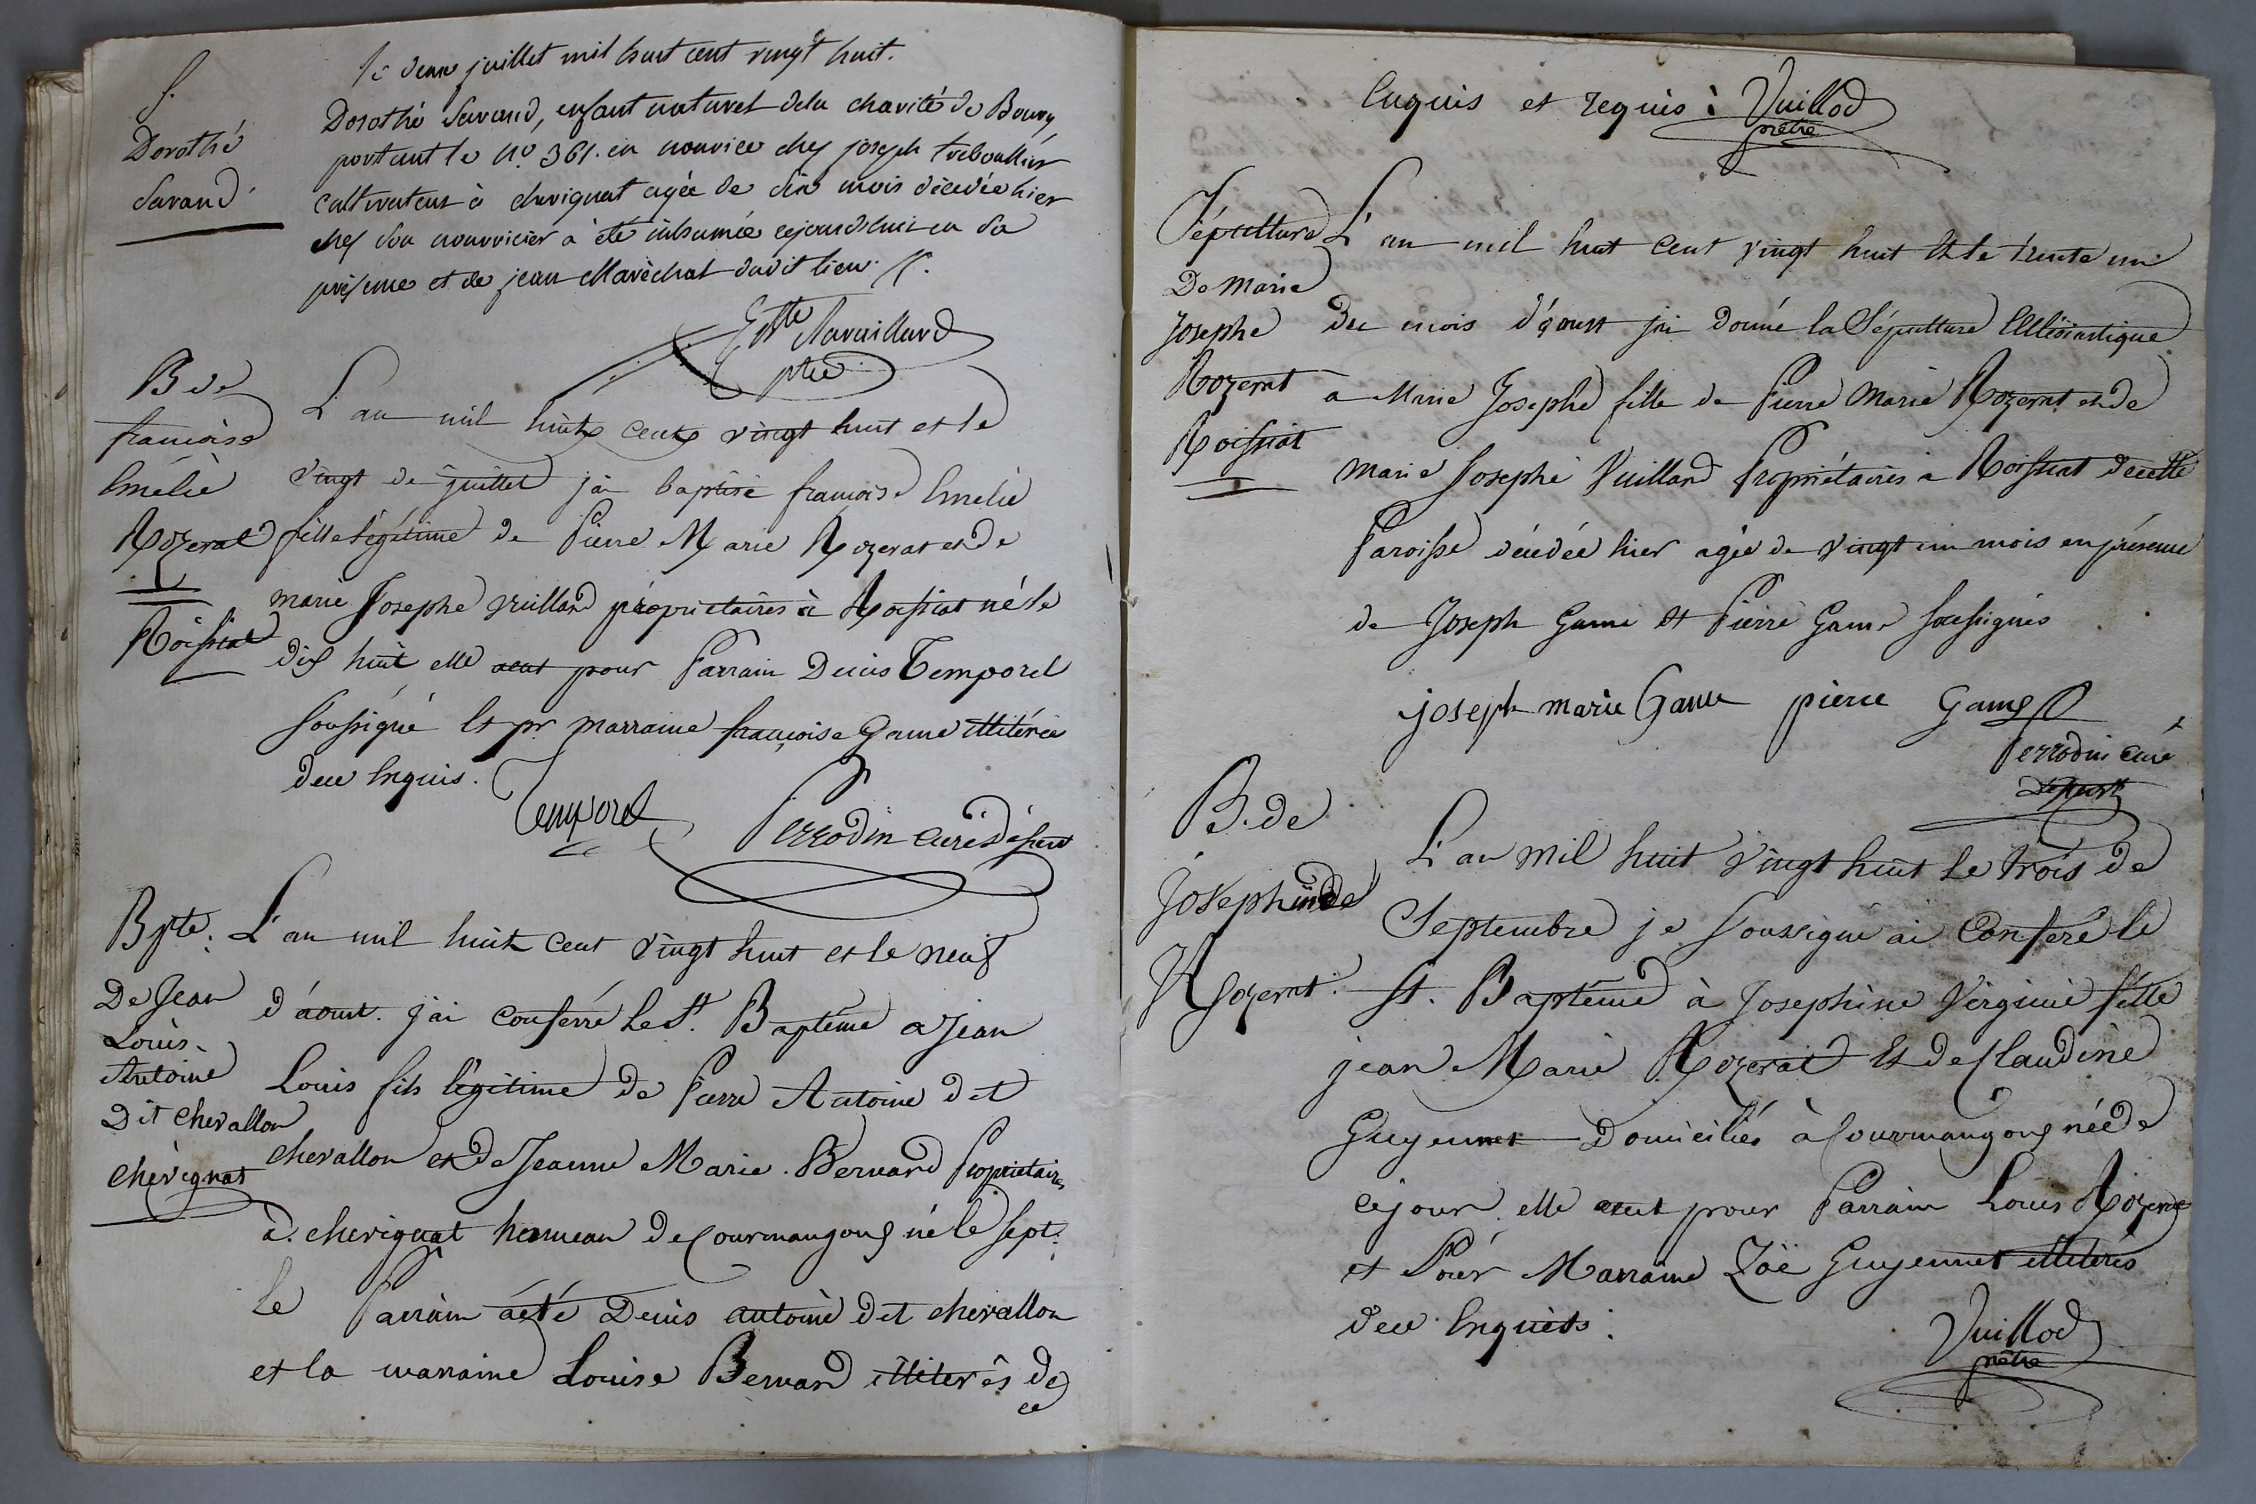 S.
Dorothé
Savand.
le deux juillet mil huit cent vingt huit.
Dorothé Savand, enfant naturel dela charité de Bourg
portant le n.º 361. en nourice chez joseph treboullier
cultivateur à chevignat agée de six mois décédée hier
chez son nourricier à été inhumée cejourdhui en sa
présence et de jean Maréchal dudit lieu.
ptre
B de
francoise
Emélie
Rozerat
Roissiat
L'an mil huit cent vingt huit et le
vingt de juillet j'ai baptisé francoise Emélie
fille légitime de Pierre Marie Rozerat et de
marie Josephe Vuillard propriétaires à Roissiat né le
dix huit elle a eut pour Parrain Denis Temporel
soussigné Et pr marraine françoise Game illitérée
dece Enquis.
Temporel Perrodin curé desert
Bpte.
De Jean
Louis
Antoine
Dit chevallon
chevignat
L'an mil huit cent vingt huit et le neuf
d'áout. j'ai conferré le St. Baptême a Jean
Louis fils légitime de Pierre Antoine dit
chevallon et de Jeanne Marie Bernard Propriétaires
à chevignat hameau de Courmangoux né le sept.
le Parrain áété Denis antoine dit chevallon
et la marraine Louise Bernard illiterés de
ce
Enquis et requis : Vuillod
prêtre
Sépulture
De Marie
Josephe
Rozerat
Roissiat
L'an mil huit cent vingt huit Et le trente un
du mois d'áoust jai donné la Sépulture Ecclésiastique
a Marie Josephe fille de Pierre Marie Rozerat et de
marie Josephe Vuillard Propriétaires a Roissiat decette
Paroisse décédée hier agée de vingt un mois en présence
de Joseph Game Et Pierre Game soussignés
joseph marie Game pierre Game
Perrodin curé
desert
B. de
Josephine
Rozerat.
L'an mil huit vingt huit le trois de
Septembre je soussigné ai Conferé le
St. Baptême à Josephine Virginie fille
jean Marie Rozerat Et de Claudine
Guyennet Domiciliés à Courmangoux née de
cejour elle a eut pour Parrain Louis Rozerat
et Pour Marraine Zoë Guyennet illiterés
dece Enquets.
Vuillod
prêtre